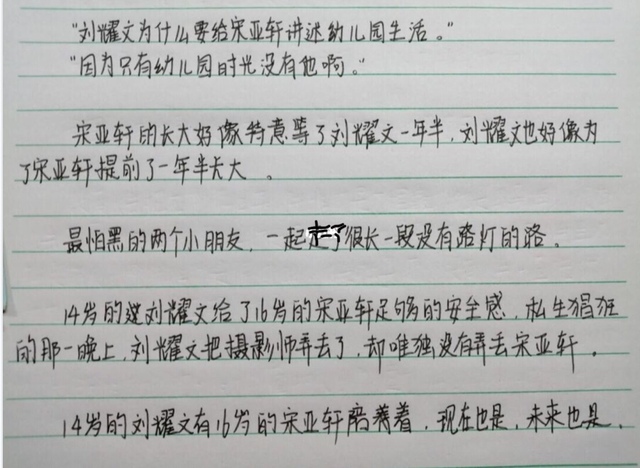 “刘耀文为什么要给宋亚轩讲述幼儿园生活。”
“因为只有幼儿园时光没有他啊。”
宋亚轩的长大好像特意等了刘耀文一年半,刘耀文也好像为
了宋亚轩提前了一年半长大。
最怕黑的两个小朋友,一起走了很长一段没有路灯的路。
14岁的刘耀文给了16岁的宋亚轩足够的安全感,私生猖狂
的那一晚上,刘耀文把摄影师弄丢了,却唯独没有弄丢宋亚轩。
14岁的刘耀文有16岁的宋亚轩陪着,现在也是,未来也是.